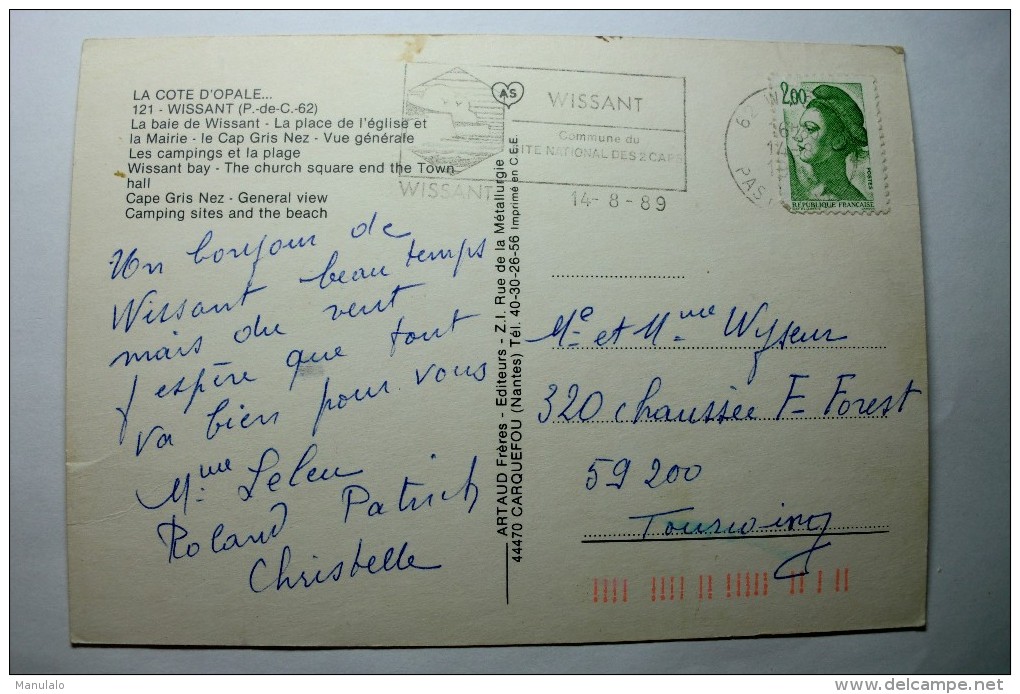 LA COTE D'OPALE...
121 - WISSANT (P.-de-C.-62)
La baie de Wissant - La place de l'église et
la Mairie - le Cap Gris Nez - Vue générale
Les campings et la plage
Wissant bay - The church square end the Town
hall
Cape Gris Nez - General view
Camping sites and the beach
Un bonjour de
Wissant beau temps
mais du vent
J espère que tout
va bien pour vous
Mme Leleu
Roland Patrick
Christelle
ARTAUD Frères - Editeurs - Z.I. Rue de la Métallurgie
44470 CARQUEFOU (Nantes) Tél. 40-30-26-56 Imprimé en C.E.E.
AS
WISSANT
WISSANT
Commune du
SITE NATIONAL DES 2 CAPS
14-8-89
62 W
PAS
2,00
POSTES
RÉPUBLIQUE FRANÇAISE
Me et Mme Wyseur
320 chaussée F- Forest
59 200
Tourcoing
Manulalo
delcampe.net